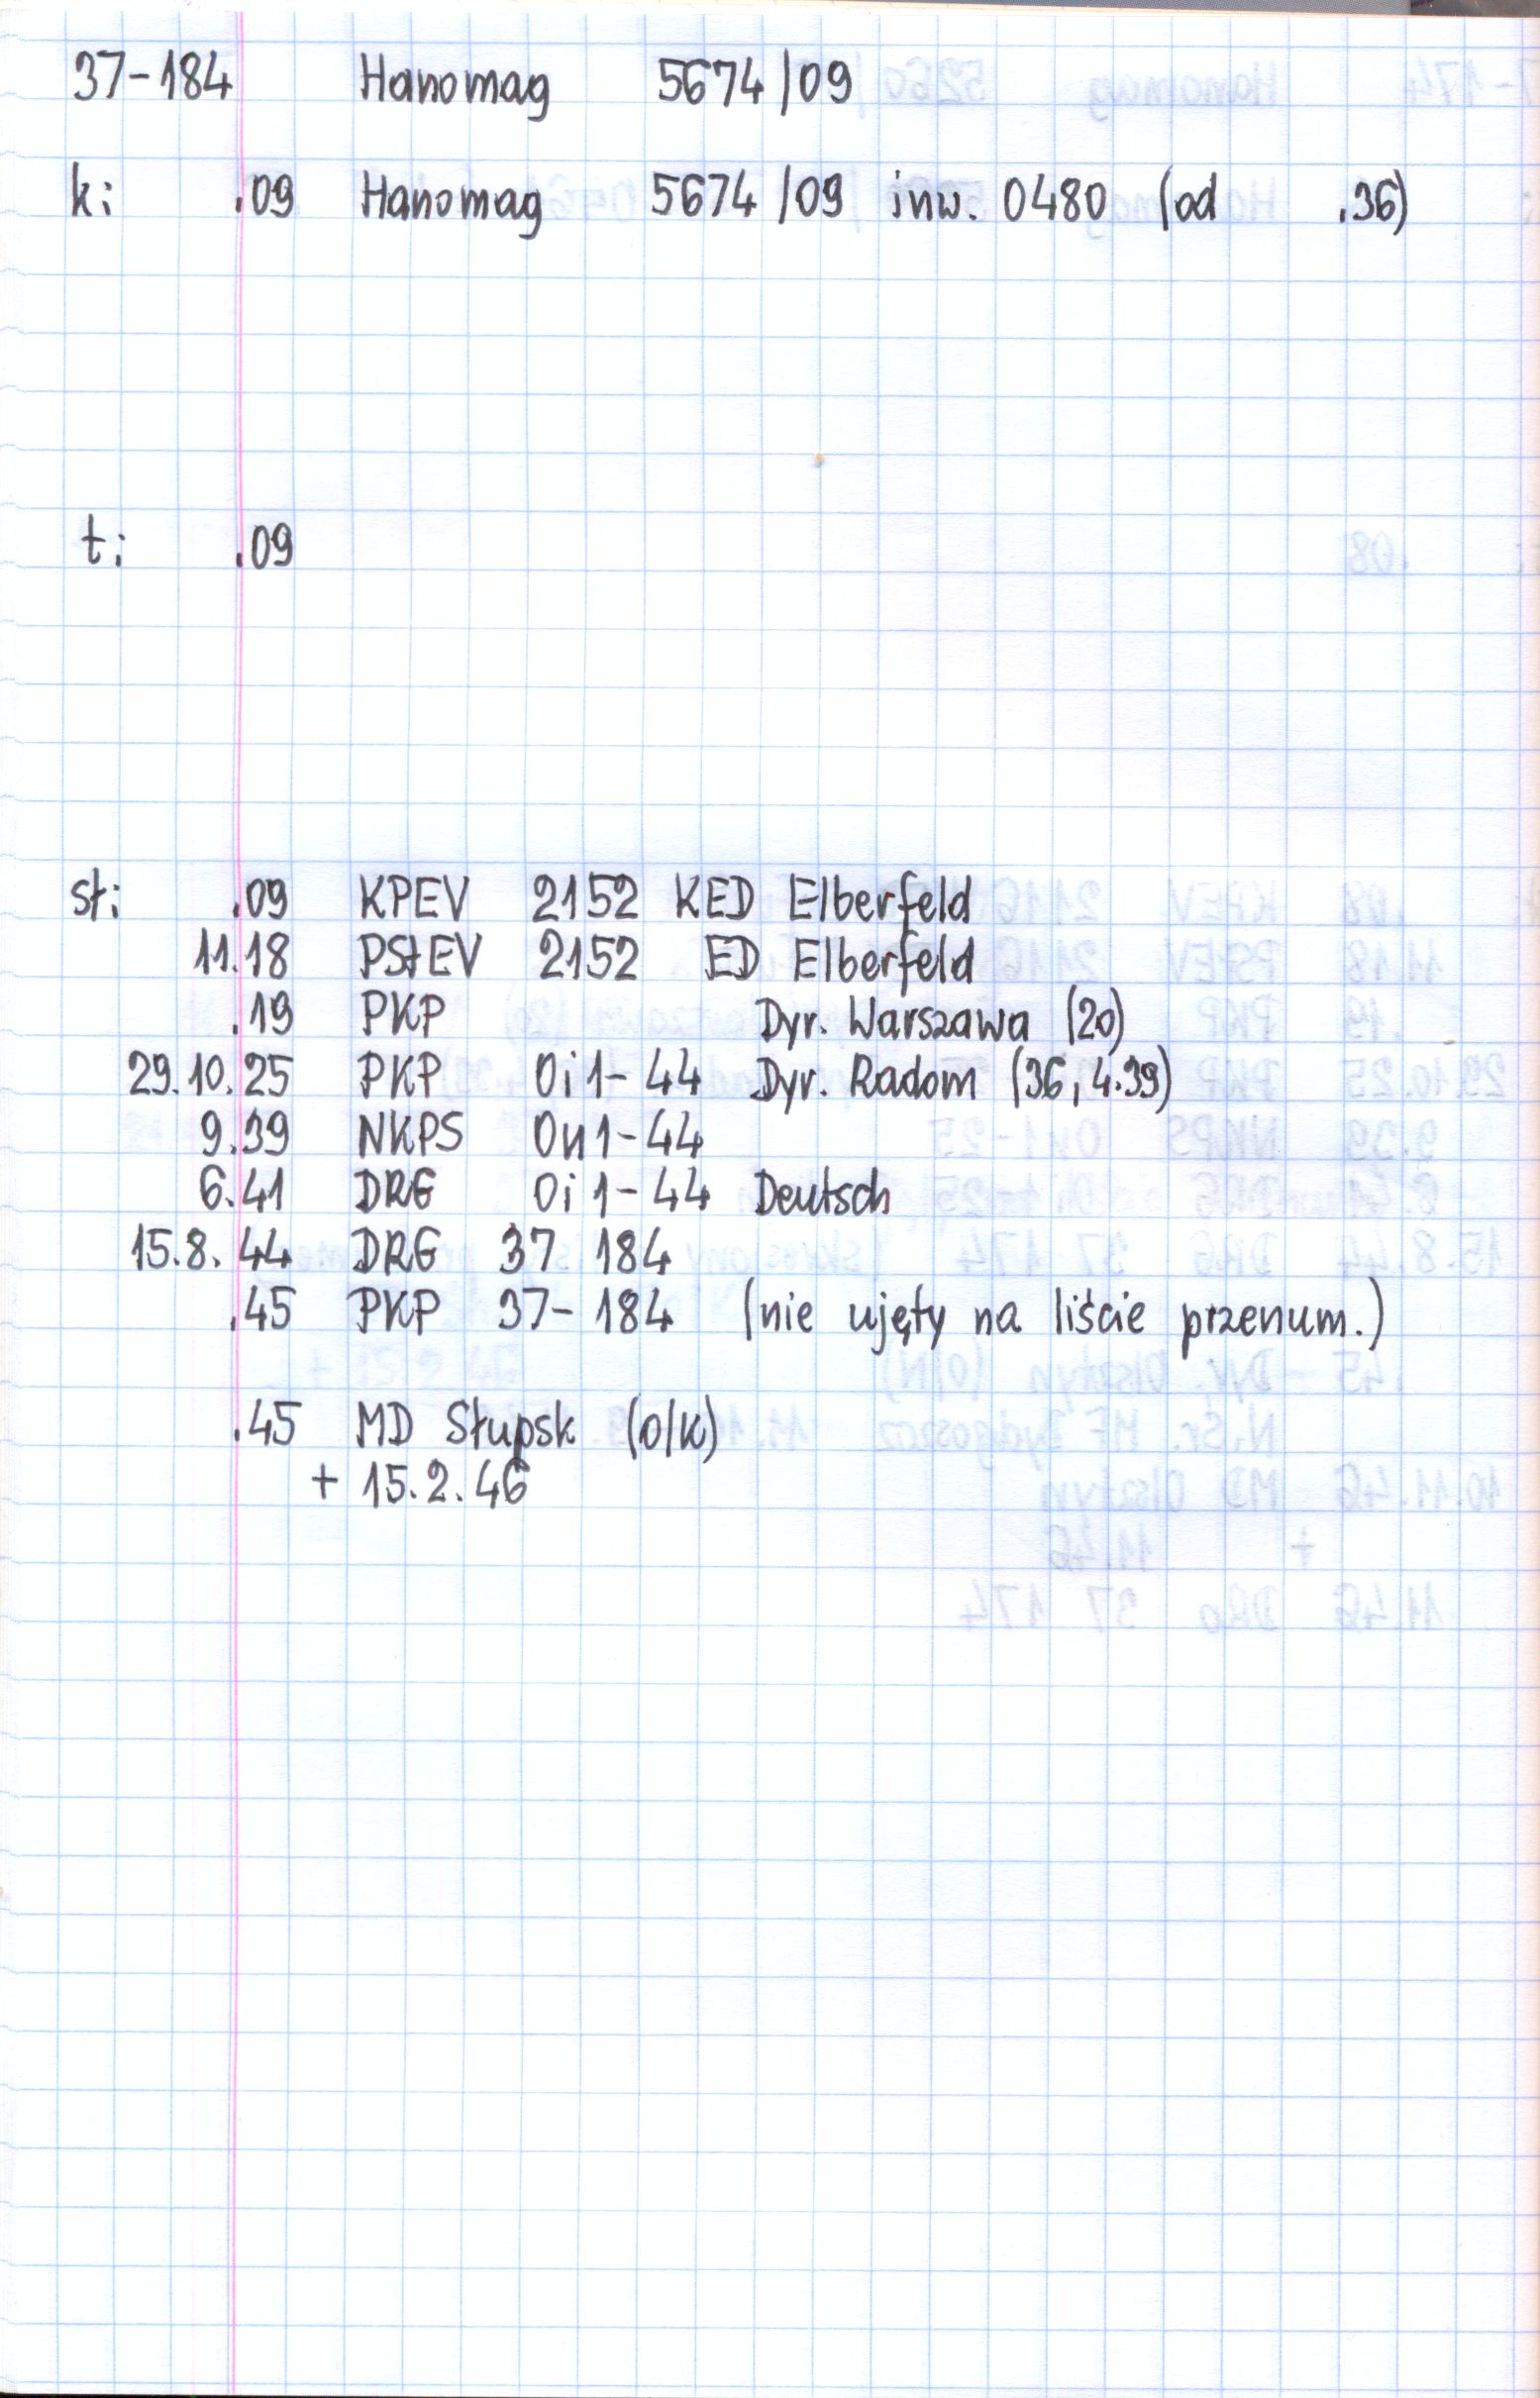 37-184 Hanomag 5674/09
k: .09 Hanomag 5674/09 inw. 0480 (od .36)
t: .09
st: .09 KPEV 2152 KED Elberfeld
11.18 PStEV 2152 ED Elberfeld
.19 PKP Dyr. Warszawa (20)
29.10.25 PKP Oi1-44 Dyr. Radom (36, 4.39)
9.39 NKPS Ои1-44
6.41 DRG Oi1-44 Deutsch
15.8.44 DRG 37 184
.45 PKP 37-184 (nie ujęty na liście przenum.)
.45 MD Słupsk (O/K)
+ 15.2.46